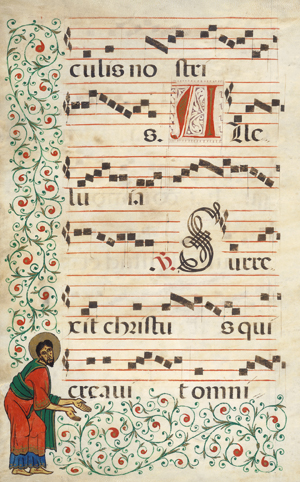 culis no stri
s. Alle
lu ia
℣. Surre
xit christu s qui
creavi t omni